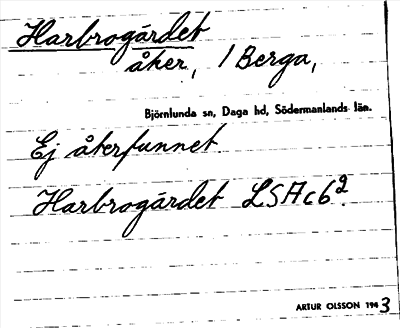 Harbrogärdet
åker, / Berga,
Björnlunda sn, Daga hd, Södermanlands län.
Ej återfunnet.
Harbrogärdet LSA c6².
ARTUR OLSSON 1943